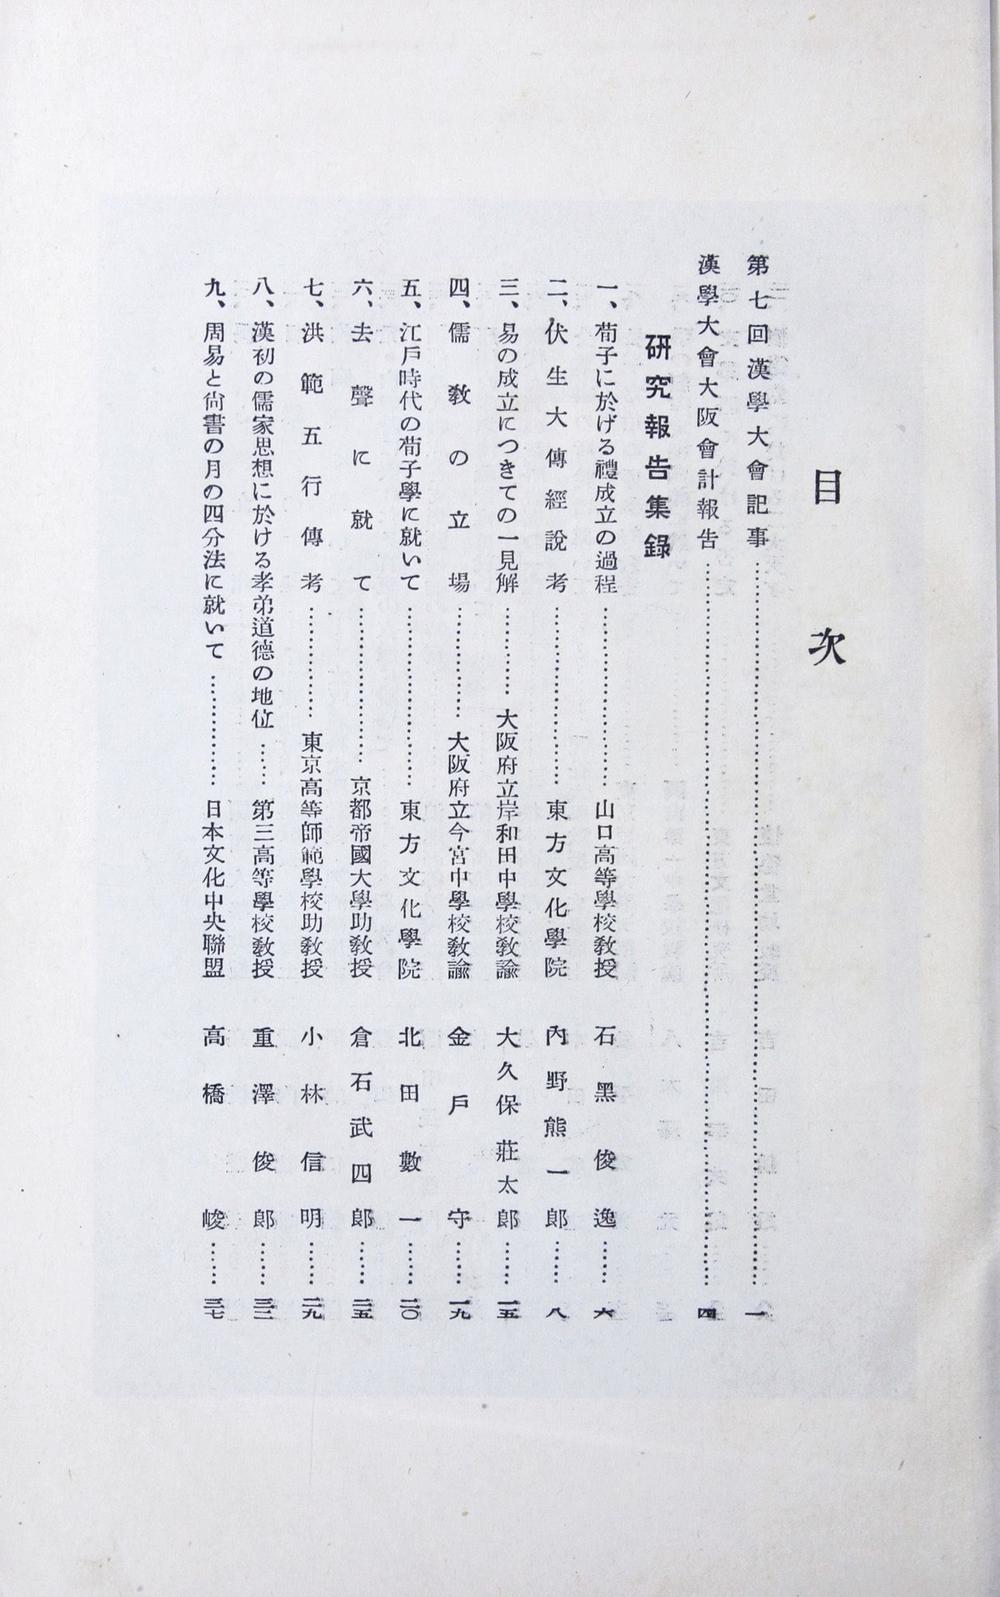 目次
第七回漢學大會記事……一
漢學大會大阪會計報告……四
研究報告集錄
一、荀子に於げる禮成立の過程……山口高等學校敎授 石黑俊逸……六
二、伏生大傳經說考……東方文化學院 內野熊一郎……八
三、易の成立につきての一見解……大阪府立岸和田中學校敎諭 大久保莊太郎……一五
四、儒敎の立場……大阪府立今宮中學校敎諭 金戶守……一九
五、江戶時代の荀子學に就いて……東方文化學院 北田數一……二〇
六、去聲に就て……京都帝國大學助敎授 倉石武四郎……二五
七、洪範五行傳考……東京高等師範學校助敎授 小林信明……二九
八、漢初の儒家思想に於ける孝弟道德の地位……第三高等學校敎授 重澤俊郎……三二
九、周易と尙書の月の四分法に就いて……日本文化中央聯盟 高橋峻……三七